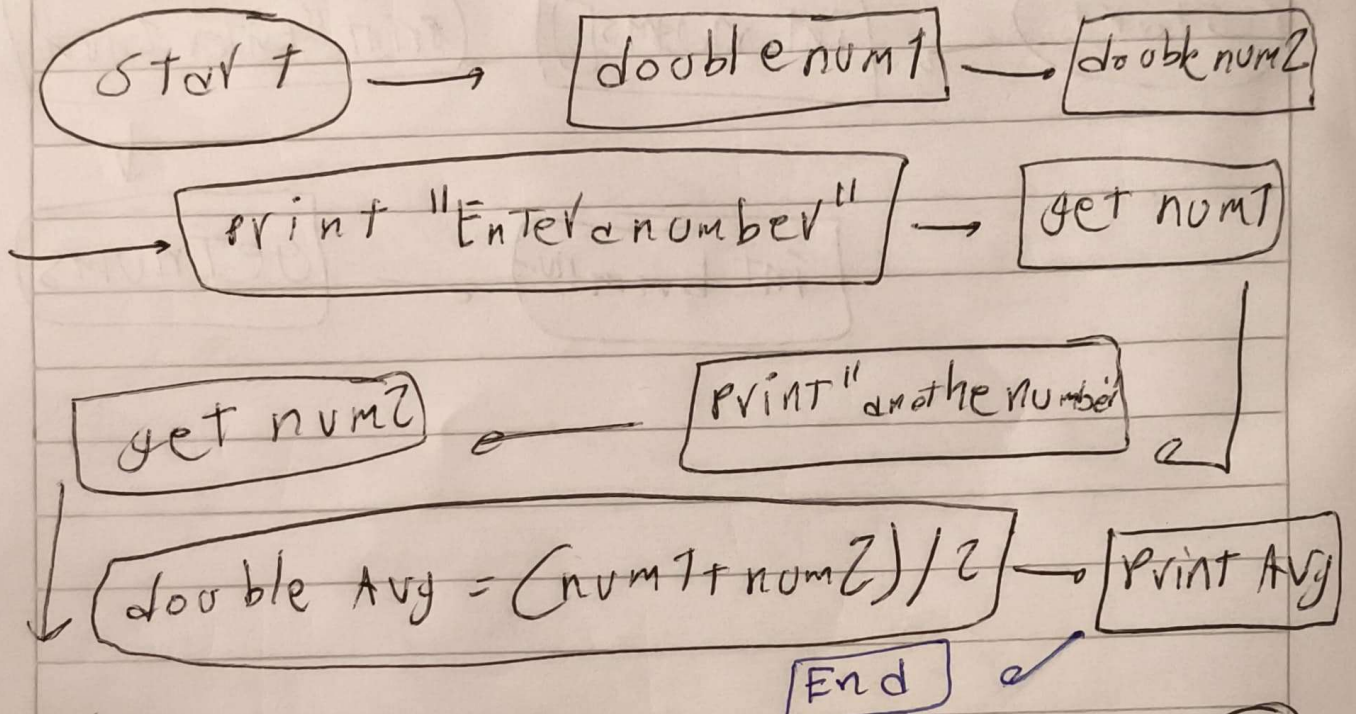 Start double num1 double num2
print "Enter a number" get num1
get num2 print "anothe number
double Avg = (num1+num2)/2 print Avg
End